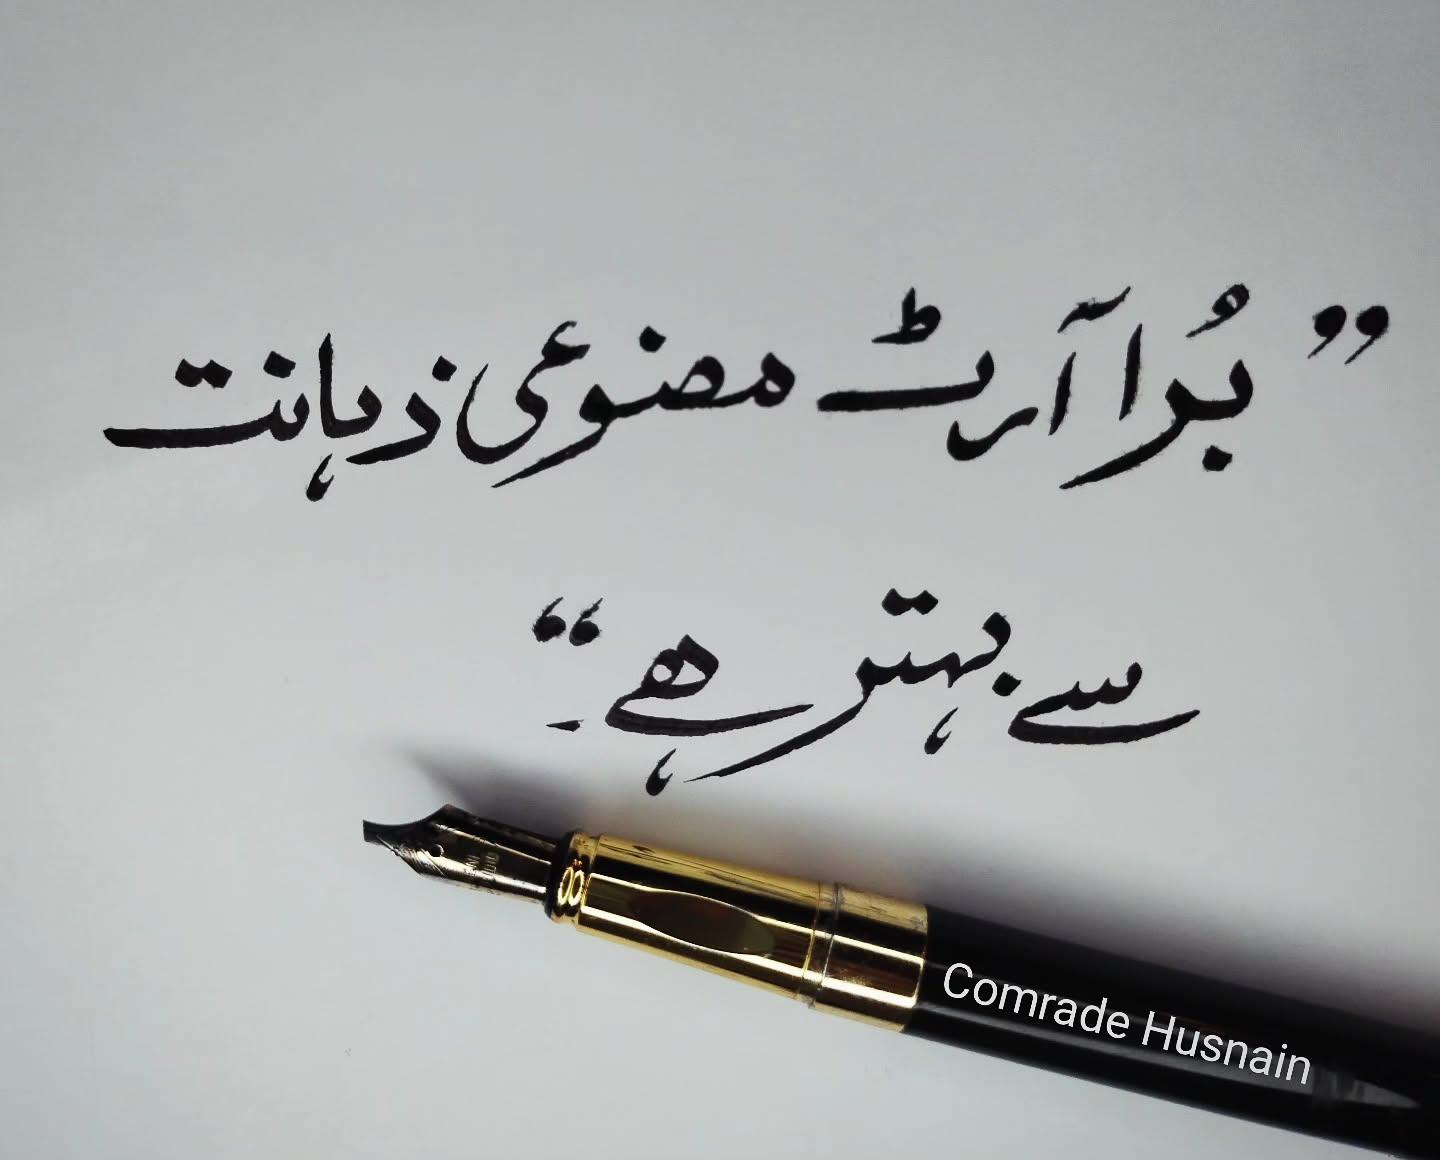 ”بُرا آرٹ مصنوعی ذہانت
سے بہتر ھے۔“
Comrade Husnain